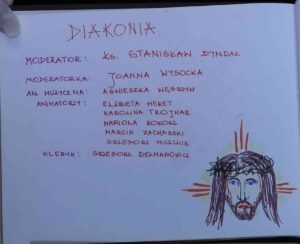 DIAKONIA
MODERATOR: ks. STANISŁAW DYNDAŁ
MODERATORKA: JOANNA WYSOCKA
AN. MUZYCZNA: AGNIESZKA WĘGRZYN
ANIMATORZY: ELŻBIETA HERET
KAROLINA TROJNAR
MARIOLA ROKOSZ
MARCIN ZACHARSKI
GRZEGORZ
KLERYK: GRZEGORZ DELMANOWICZ